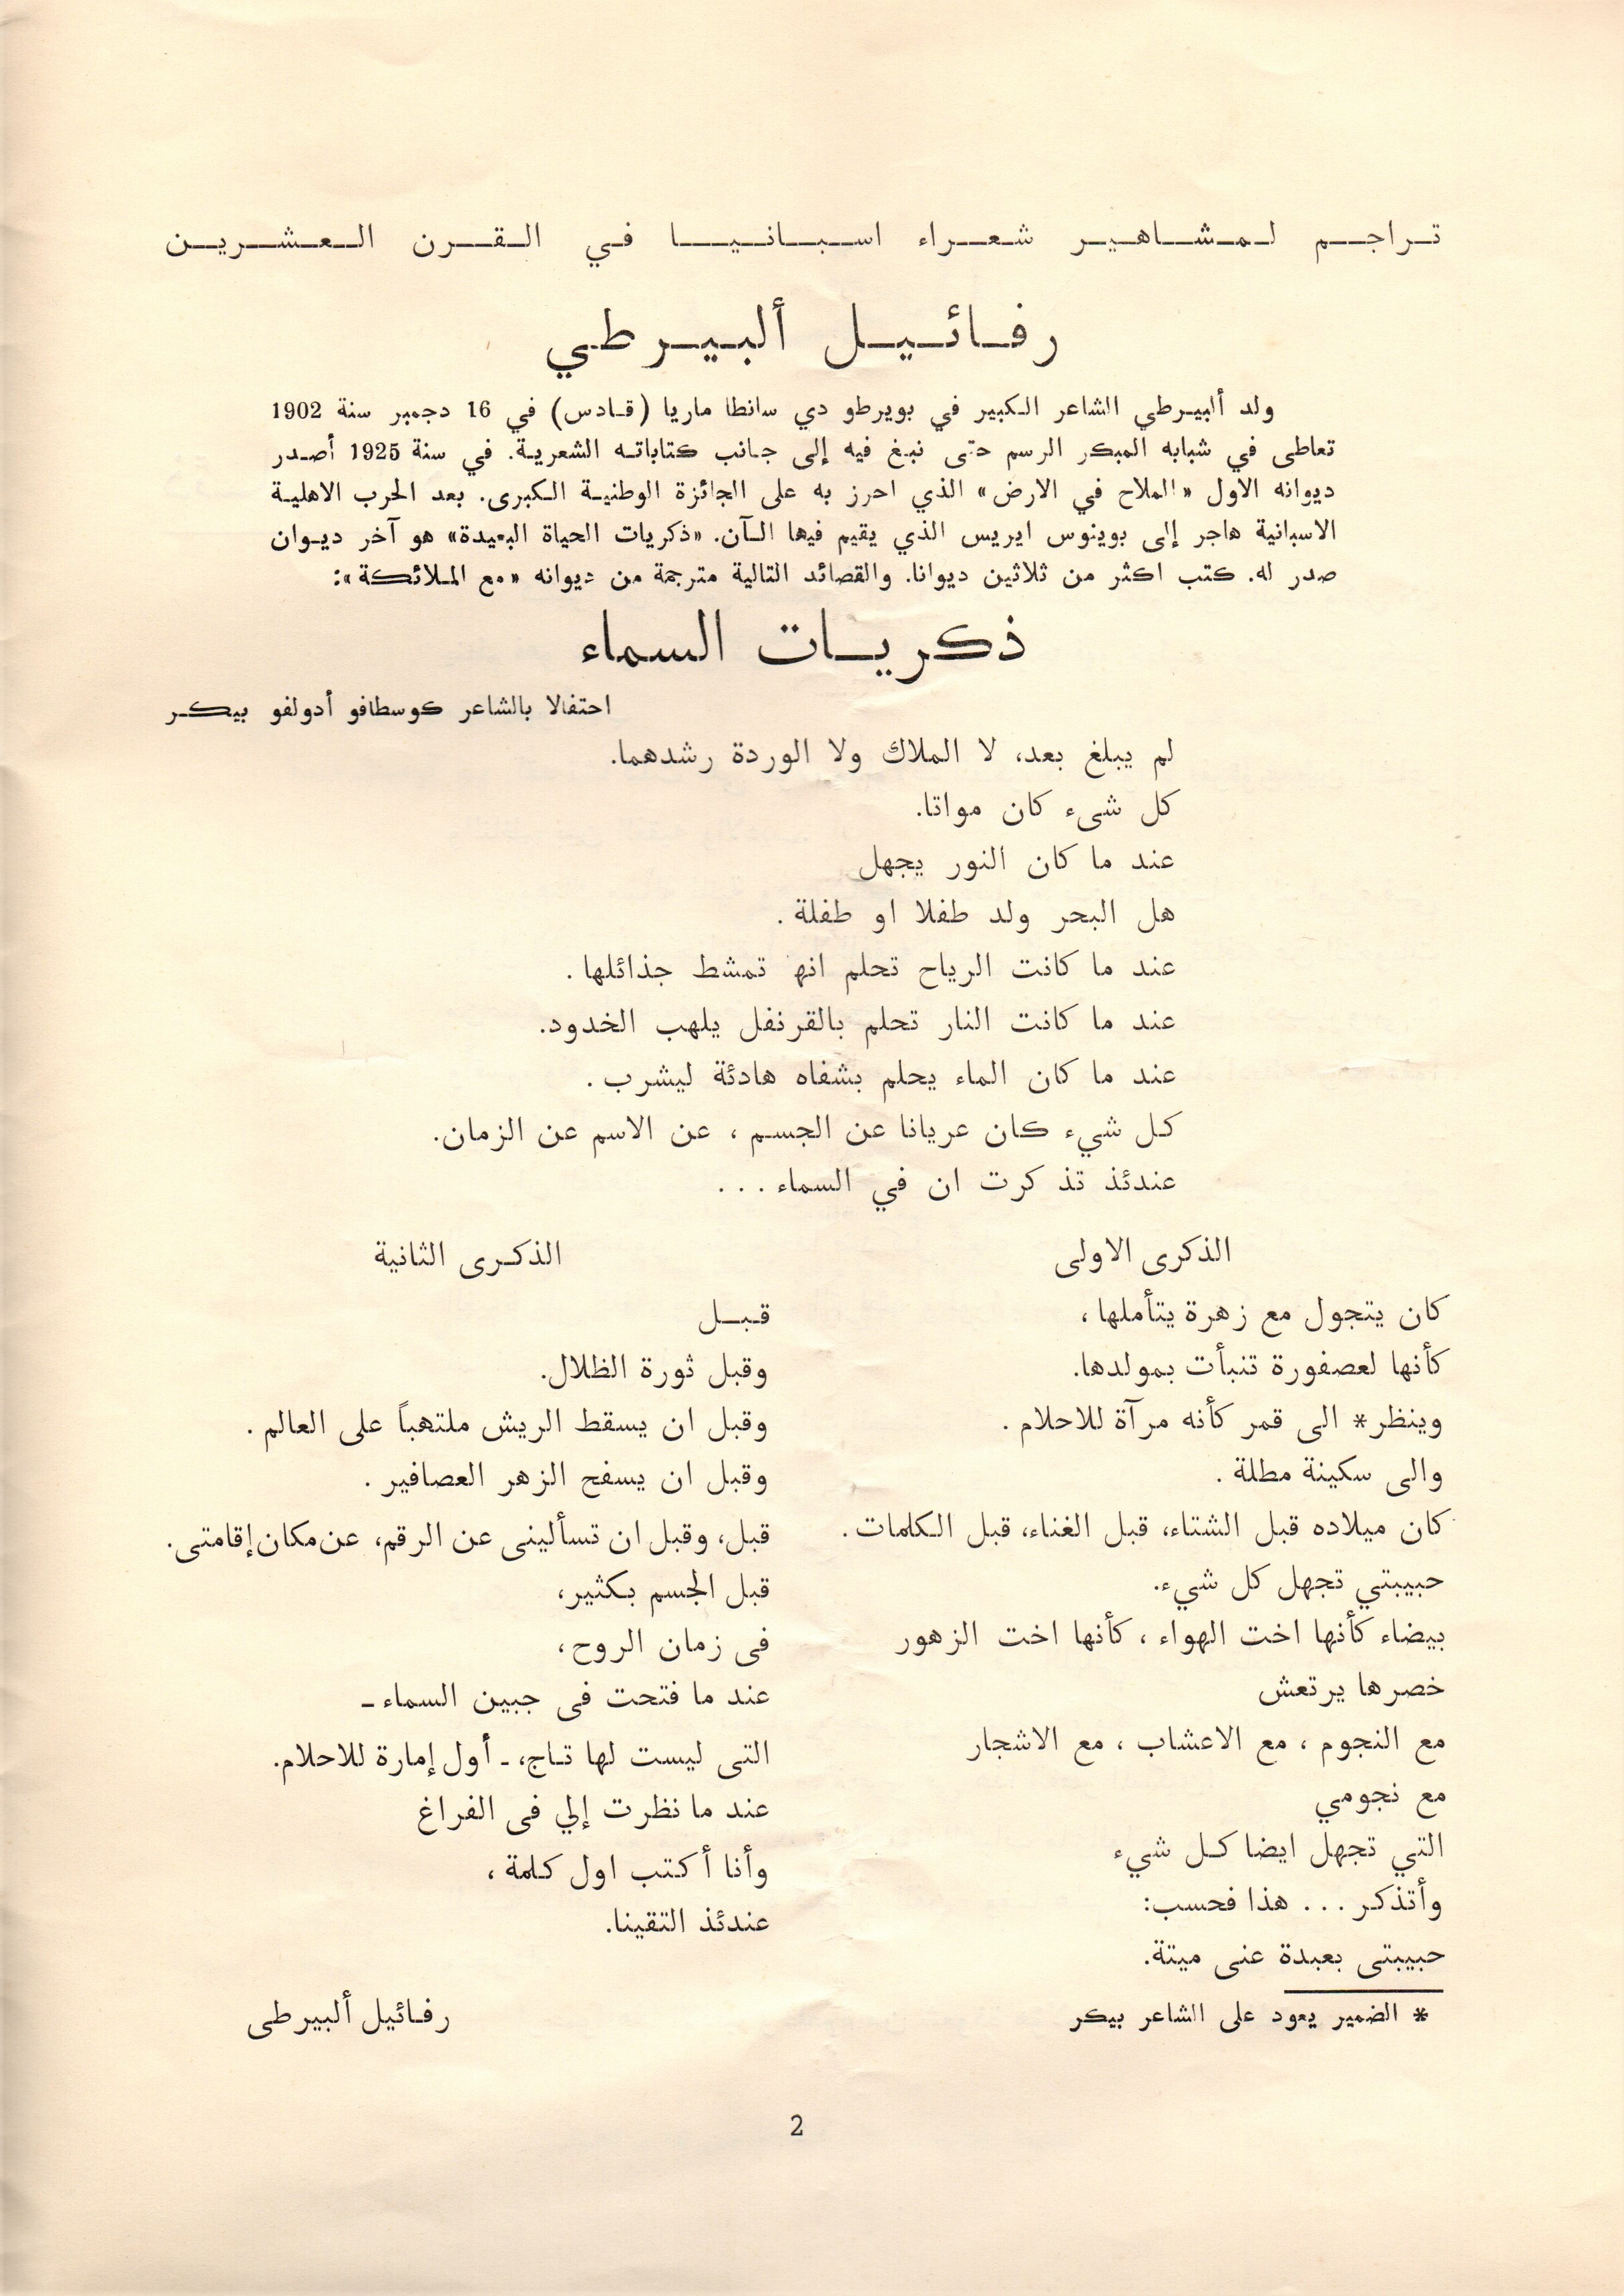 تراجم لمشاهير شعراء اسبانيا في القرن العشرين
رفائيل ألبيرطي
ولد ألبيرطي الشاعر الكبير في بويرطو دي سانطا ماريا (قادس) في 16 دجمبر سنة 1902
تعاطى في شبابه المبكر الرسم حتى نبغ فيه إلى جانب كتاباته الشعرية. في سنة 1925 أصدر
ديوانه الاول «الملاح في الارض» الذي احرز به على الجائزة الوطنية الكبرى. بعد الحرب الاهلية
الاسبانية هاجر إلى بوينوس ايريس الذي يقيم فيها الآن. «ذكريات الحياة البعيدة» هو آخر ديوان
صدر له. كتب اكثر من ثلاثين ديوانا. والقصائد التالية مترجمة من ديوانه «مع الملائكة»:
ذكريات السماء
احتفالا بالشاعر كوسطافو أدولفو بيكر
لم يبلغ بعد، لا الملاك ولا الوردة رشدهما.
كل شىء كان مواتا.
عند ما كان النور يجهل
هل البحر ولد طفلا او طفلة .
عند ما كانت الرياح تحلم انها تمشط جذائلها .
عند ما كانت النار تحلم بالقرنفل يلهب الخدود.
عند ما كان الماء يحلم بشفاه هادئة ليشرب .
كل شيء كان عريانا عن الجسم ، عن الاسم عن الزمان.
عندئذ تذكرت ان في السماء . . .
الذكرى الاولى
كان يتجول مع زهرة يتأملها ،
كأنها لعصفورة تنبأت بمولدها.
وينظر* الى قمر كأنه مرآة للاحلام .
والى سكينة مطلة .
كان ميلاده قبل الشتاء، قبل الغناء، قبل الكلمات .
حبيبتي تجهل كل شيء.
بيضاء كأنها اخت الهواء ، كأنها اخت الزهور
خصرها يرتعش
مع النجوم ، مع الاعشاب ، مع الاشجار
مع نجومي
التي تجهل ايضا كل شيء
وأتذكر . . . هذا فحسب:
حبيبتى بعبدة عنى ميتة.
* الضمير يعود على الشاعر بيكر
الذكرى الثانية
قبل
وقبل ثورة الظلال.
وقبل ان يسقط الريش ملتهباً على العالم .
وقبل ان يسفح الزهر العصافير .
قبل، وقبل ان تسألينى عن الرقم، عن مكان إقامتى.
قبل الجسم بكثير،
فى زمان الروح،
عند ما فتحت فى جبين السماء ـ
التى ليست لها تاج، ـ أول إمارة للاحلام.
عند ما نظرت إلي فى الفراغ
وأنا أكتب اول كلمة ،
عندئذ التقينا.
رفائيل ألبيرطى
2